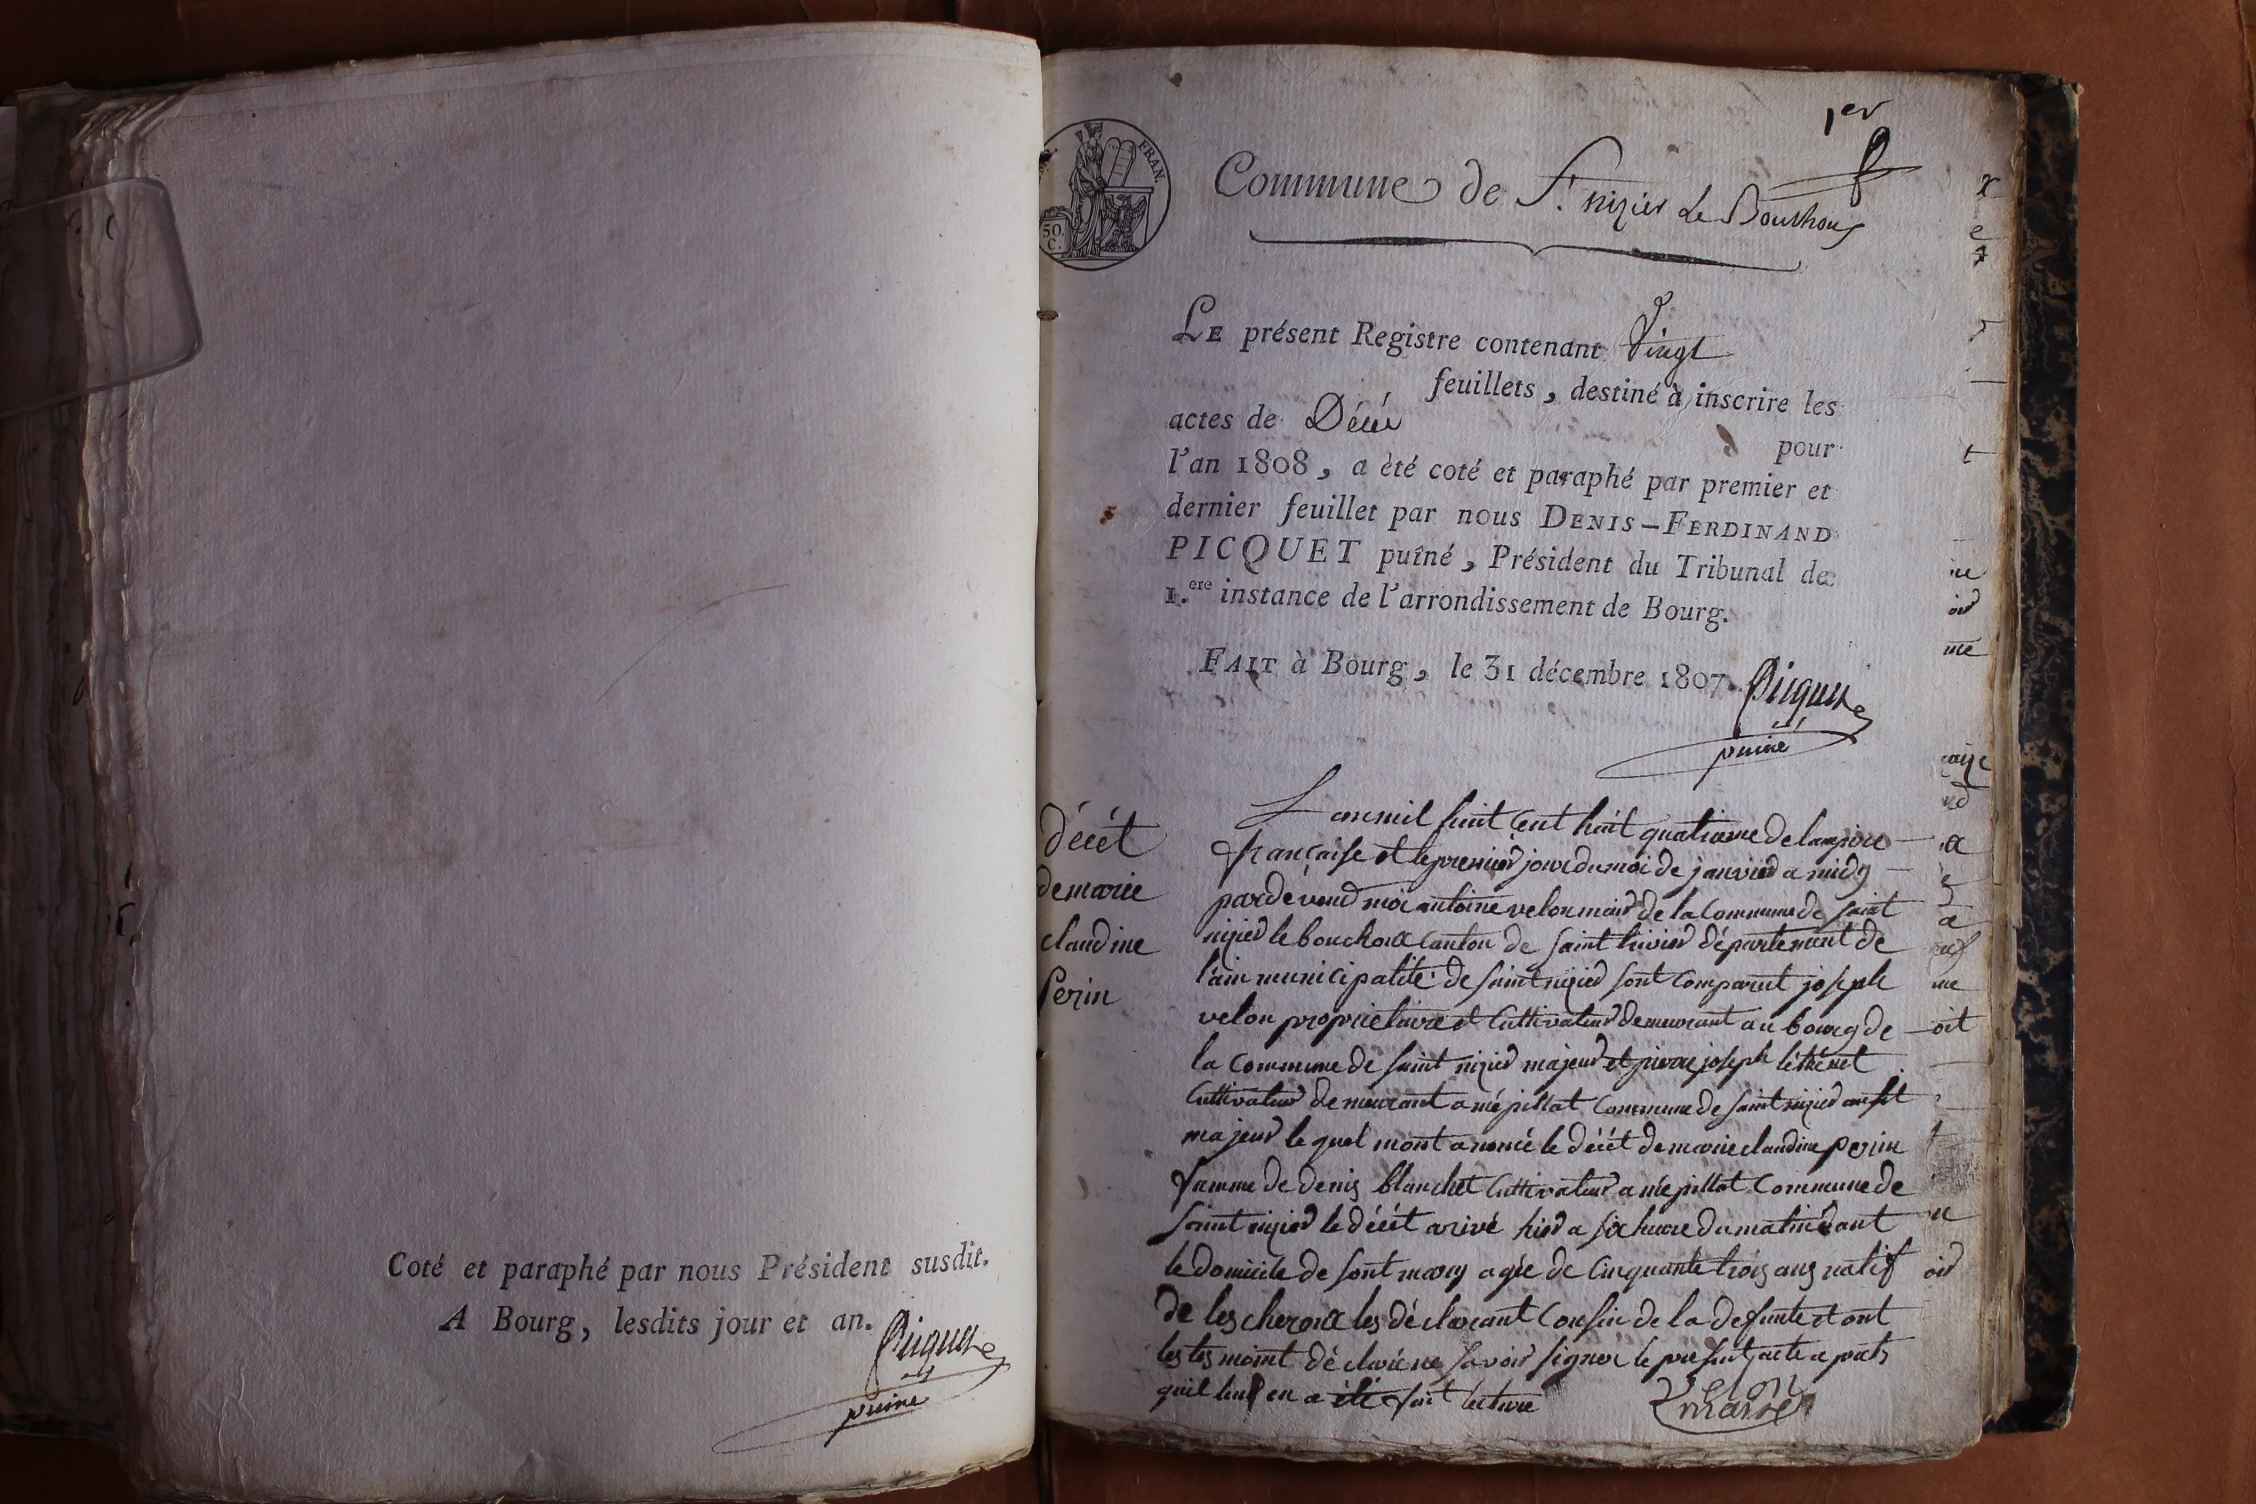 Coté et paraphé par nous Président susdit.
A Bourg, lesdits jour et an.
Picquet
puiné
1er
FRAN.
50.
C.
Commune de St. nizier Le Bouchoux
LE présent Registre contenant Vingt
feuillets, destiné à inscrire les
actes de Décès
pour
l'an 1808, a èté coté et paraphé par premier et
dernier feuillet par nous DENIS-FERDINAND
PICQUET puîné, Président du Tribunal de
1.ere instance de l'arrondissement de Bourg.
FAIT à Bourg, le 31 décembre 1807.
Picquet
puiné
décét
de marie
claudine
Perin
Lan mil huit cent huit quatrieme de lampire
française et le premier jour du moi de janvier a midy
pardevend moi antoine velon maire de la Commune de saint
nizier le bouchoux canton de saint trivier département de
l'ain municipalité de saint nizier sont comparut joseph
velon proprietaire et Cultivateur demeurant au bourg de
la commune de saint nizier majeur et pierre joseph
Cultivateur demeurant a mépillat Commune de saint nizier ausit
majeur le quel mont anoncé le décét de marie claudine perin
famme de denis blanchet Cultivateur a mépillat Commune de
saint nizier le décét arivé hier a six heure du matin dant
le domicile de sont mary agée de Cinquante trois ans natif
de les cheroux les déclarant Cousin de la defunte et ont
les tesmoint déclaré ne savoir signer le present acte a prés
quil leur en a été fait lecture
Velon
maire